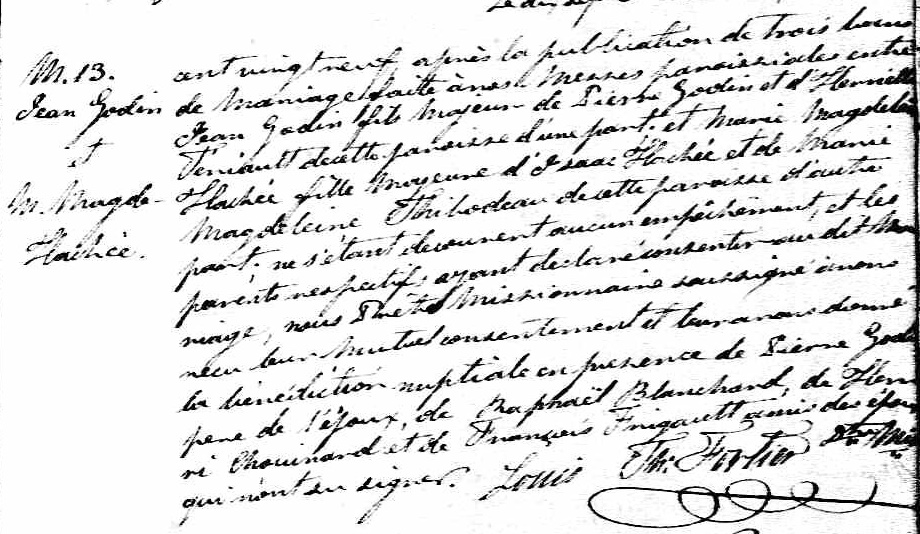 Le dix sept
M. 13.
Jean Godin
et
M. Magde-
Hachée.
cent vingt neuf après la publication de trois bans
de mariage faite à nos Messes paroissiales entre
Jean Godin fils Majeur de Pierre Godin et d'Henriette
Thériault de cette paroisse d'une part; et Marie Magdeleine
Hachée fille Mageure d'Isaac Hachée et de Marie
Magdeleine Thibodeau de cette paroisse d'autre
part; ne s'étant découvert aucun empêchement, et les
parents respectifs ayant déclaré consentir au dit Ma
riage, nous Prêtre Missionnaire soussigné avons
reçu leur Mutuel consentement et leur avons donné
la bénédiction nuptiale en présence de Pierre Godin
père de l'époux, de Raphaël Blanchard, de Hen
ri Chouinard et de François Frigault amis des époux
qui n'ont su signer. Louis Thé. Fortier Ptre Miss